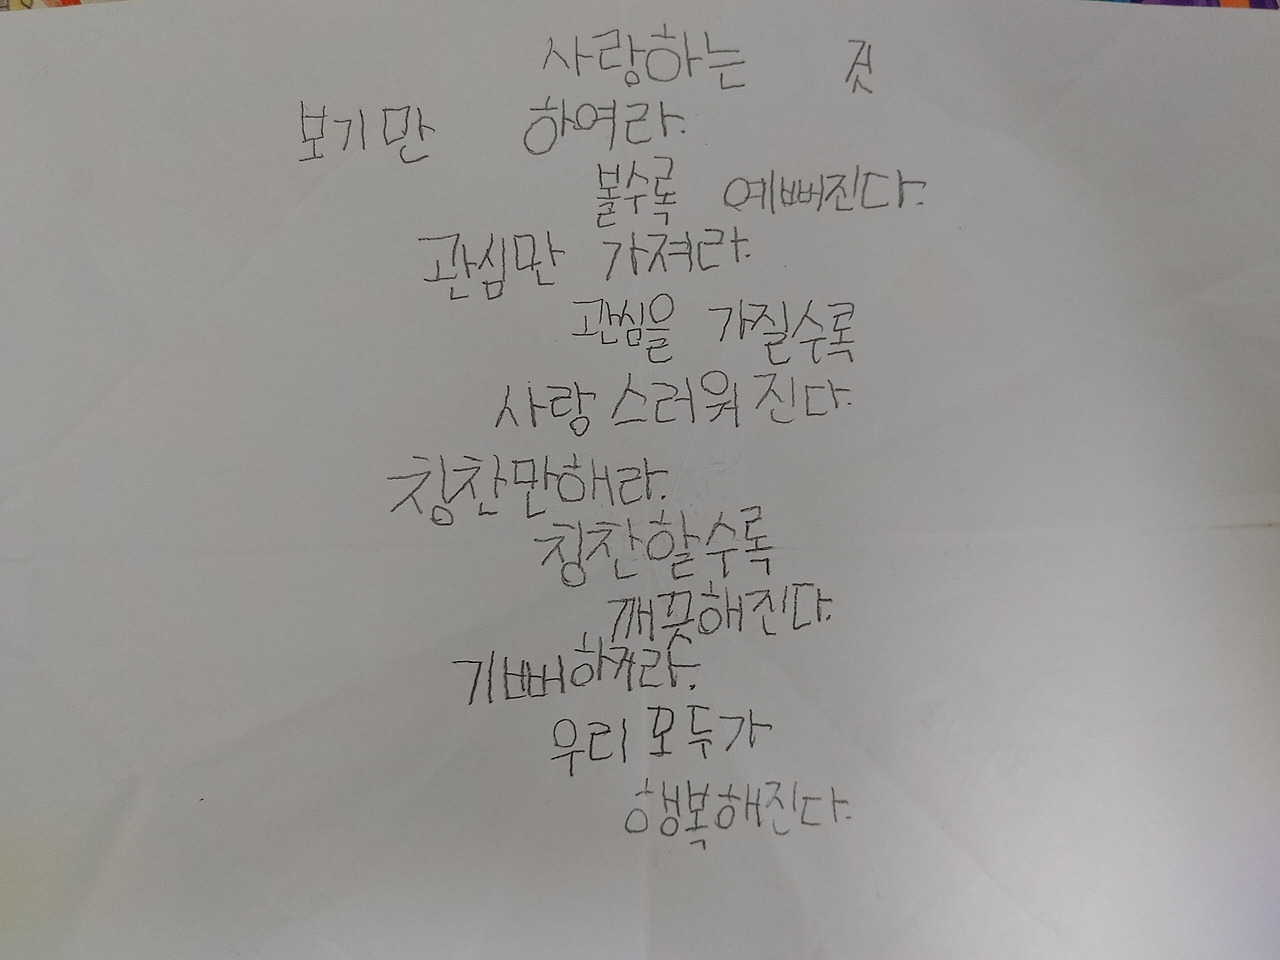 사랑하는 것
보기만 하여라.
볼수록 예뻐진다.
관심만 가져라.
관심을 가질수록
사랑스러워진다.
칭찬만해라.
칭찬할수록
깨끗해진다.
기뻐하게라.
우리 모두가
행복해진다.